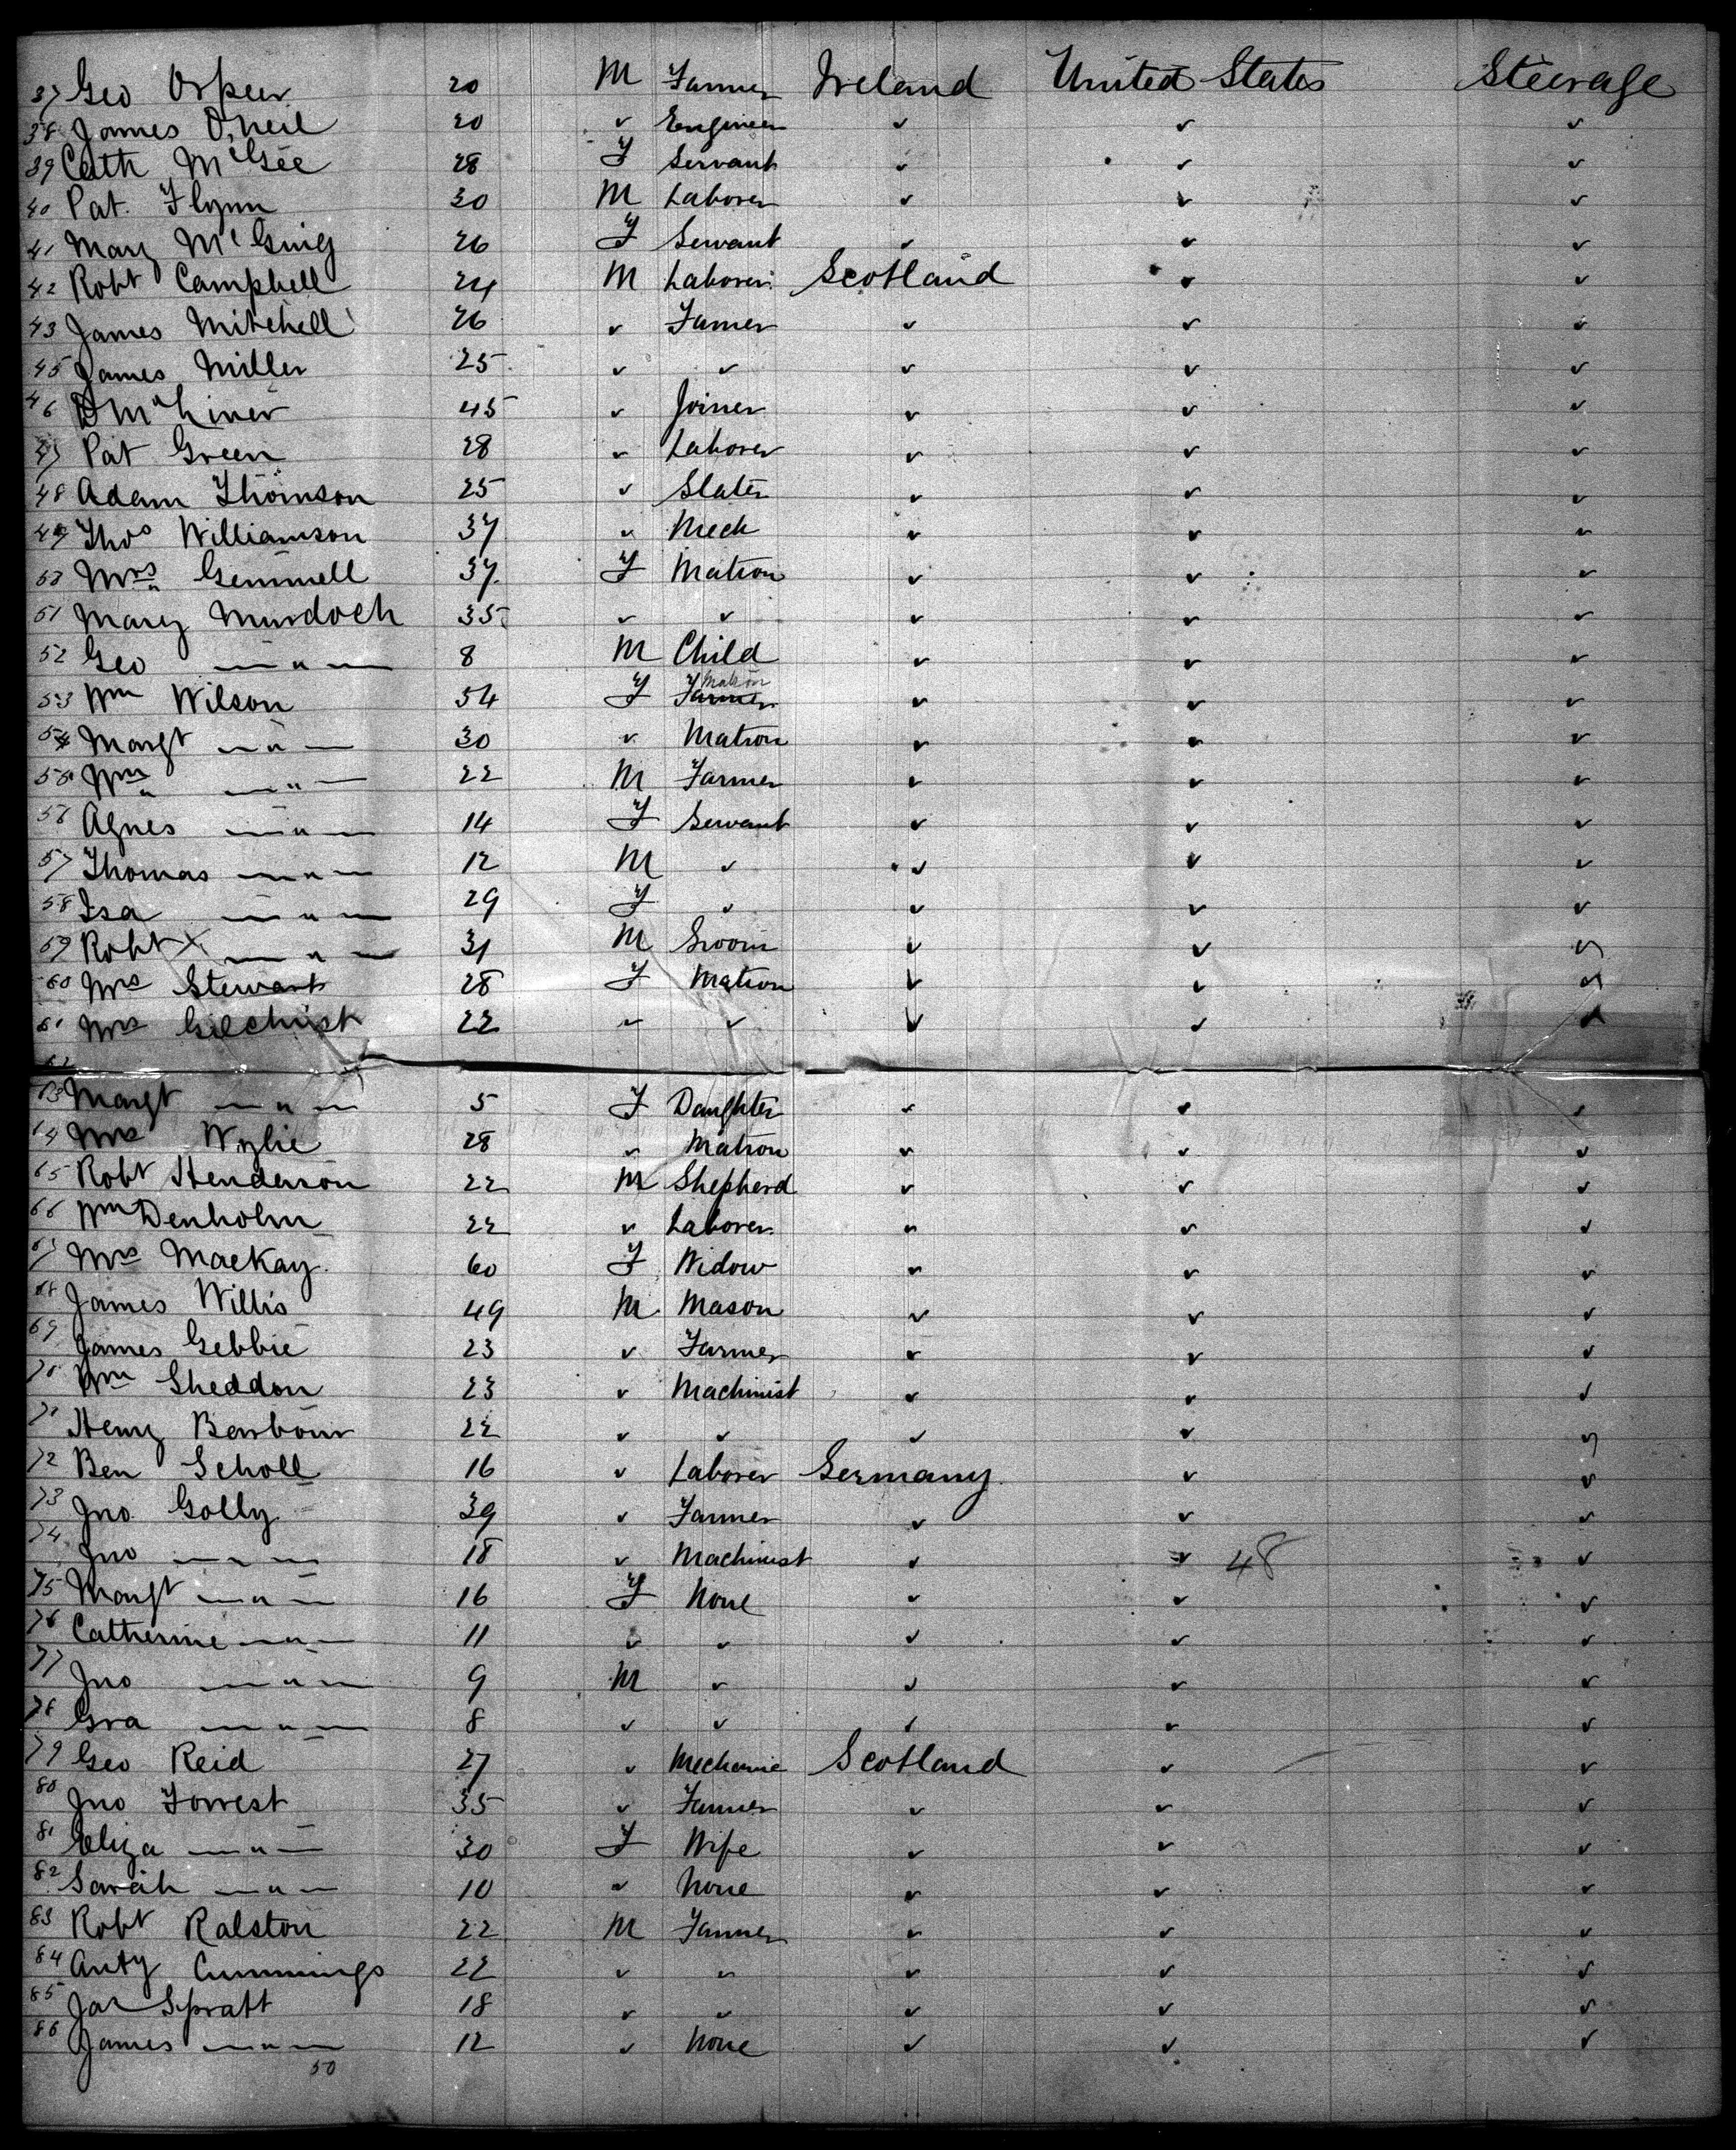 37 Geo Orpen 20 M Farmer Ireland United States Steerage
38 James O'Neil 20 ✓ Engineer ✓ ✓ ✓
39 Cath McGee 28 F Servant ✓ ✓ ✓
40 Pat. Flynn 30 M Laborer ✓ ✓ ✓
41 Mary McGuig 26 F Servant ✓ ✓ ✓
42 Robt Campbell 24 M Laborer Scotland ✓ ✓
43 James Mitchell 26 ✓ Farmer ✓ ✓ ✓
45 James Miller 25 ✓ ✓ ✓ ✓ ✓
46 D 45 ✓ Joiner ✓ ✓ ✓
47 Pat Green 28 ✓ Laborer ✓ ✓ ✓
48 Adam Thomson 25 ✓ Slater ✓ ✓ ✓
49 Thos Williamson 37 ✓ Mech ✓ ✓ ✓
50 Mrs Gemmell 37 F Matron ✓ ✓ ✓
51 Mary Murdoch 35 ✓ ✓ ✓ ✓ ✓
52 Geo —"— 8 M Child ✓ ✓ ✓
53 Wm Wilson 54 F Farmer Matron ✓ ✓ ✓
54 Margt —"— 30 ✓ Matron ✓ ✓ ✓
55 Wm —"— 22 M Farmer ✓ ✓ ✓
56 Agnes —"— 14 F Servant ✓ ✓ ✓
57 Thomas —"— 12 M ✓ ✓ ✓ ✓
58 Isa —"— 29 F ✓ ✓ ✓ ✓
59 Robt X —"— 31 M Groom ✓ ✓ ✓
60 Mrs Stewart 28 F Matron ✓ ✓ ✓
61 Mrs Gilchrist 22 ✓ ✓ ✓ ✓ ✓
62
63 Margt —"— 5 F Daughter ✓ ✓ ✓
64 Mrs Wylie 28 ✓ Matron ✓ ✓ ✓
65 Robt Henderson 22 M Shepherd ✓ ✓ ✓
66 Wm Denholm 22 ✓ Laborer ✓ ✓ ✓
67 Mrs MacKay 60 F Widow ✓ ✓ ✓
68 James Willis 49 M Mason ✓ ✓ ✓
69 James Gebbie 23 ✓ Farmer ✓ ✓ ✓
70 Wm Sheddon 23 ✓ Machinist ✓ ✓ ✓
71 Henry Barbour 22 ✓ ✓ ✓ ✓ ✓
72 Ben Scholl 16 ✓ Laborer Germany ✓ ✓
73 Jno Golly 39 ✓ Farmer ✓ ✓ ✓
74 Jno —"— 18 ✓ Machinist ✓ ✓ 48 ✓
75 Margt —"— 16 F None ✓ ✓ ✓
76 Catherine —"— 11 ✓ ✓ ✓ ✓ ✓
77 Jno —"— 9 M ✓ ✓ ✓ ✓
78 Gra —"— 8 ✓ ✓ ✓ ✓ ✓
79 Geo Reid 27 ✓ Mechanic Scotland ✓ ✓
80 Jno Forrest 35 ✓ Farmer ✓ ✓ ✓
81 Eliza —"— 30 F Wife ✓ ✓ ✓
82 Sarah —"— 10 ✓ None ✓ ✓ ✓
83 Robt Ralston 22 M Farmer ✓ ✓ ✓
84 Anty Cummings 22 ✓ " ✓ ✓ ✓
85 Jas Spratt 18 ✓ ✓ ✓ ✓ ✓
86 James —"— 12 ✓ None ✓ ✓ ✓
50